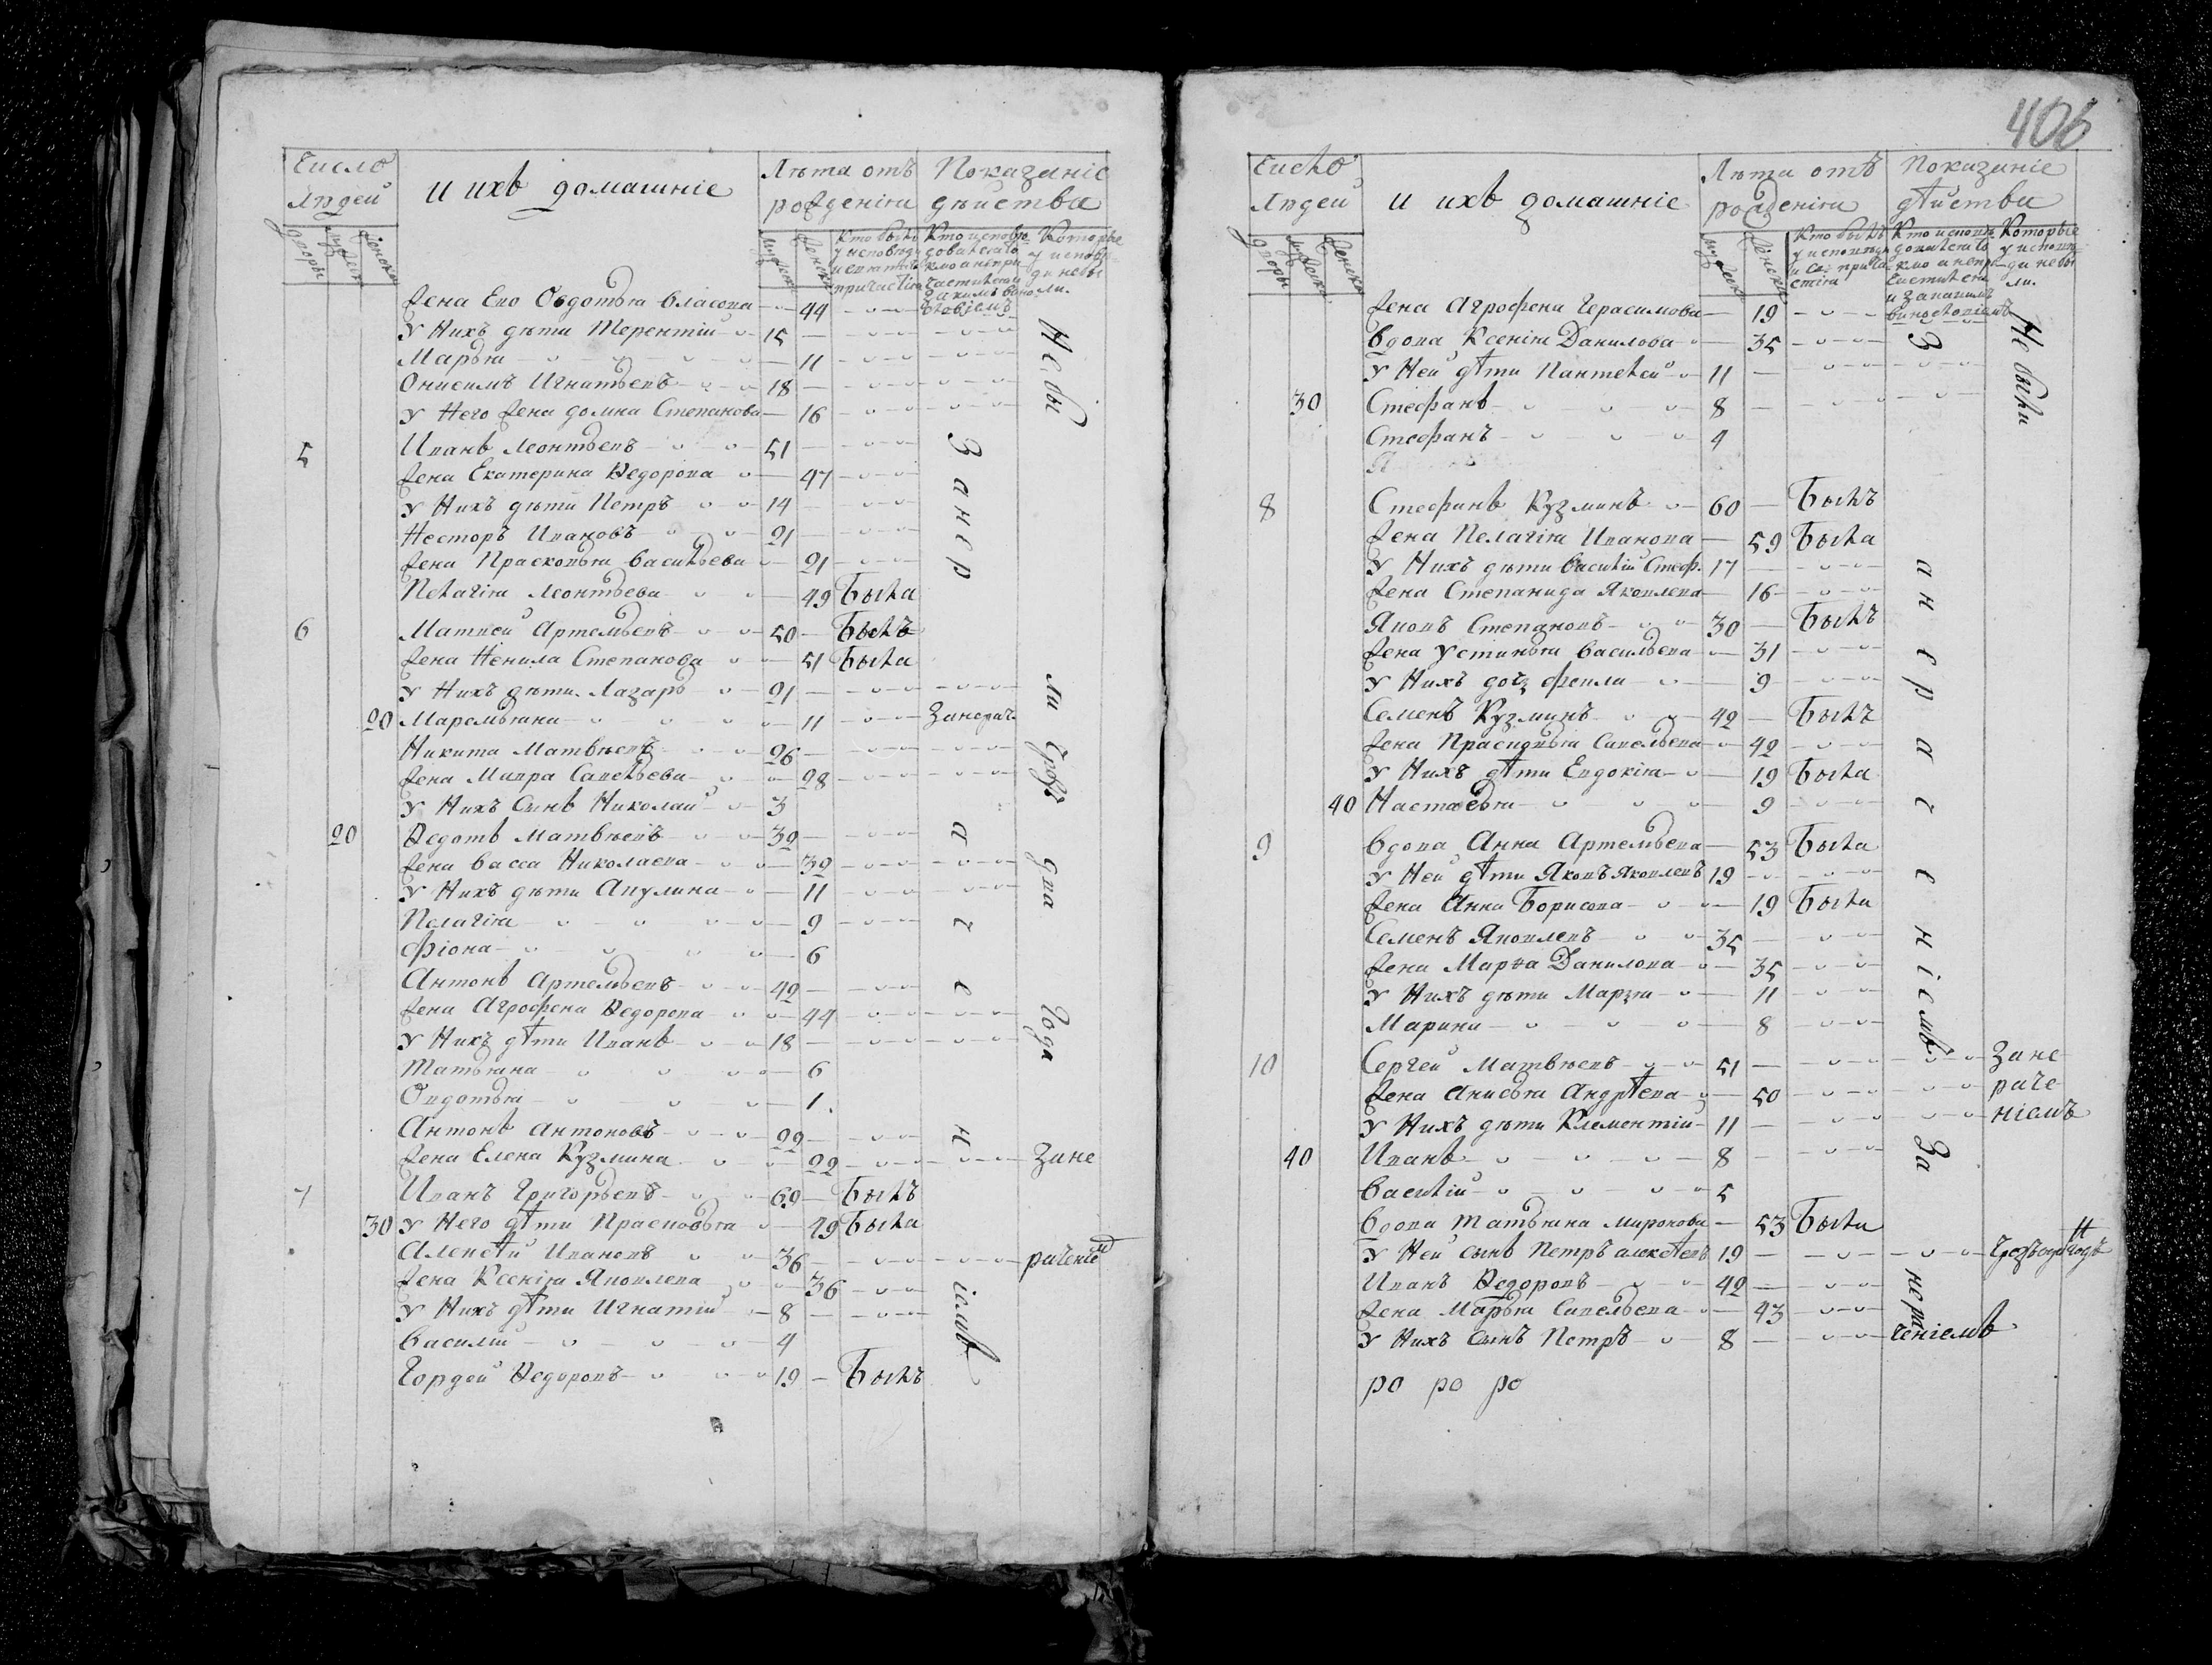 Число Людей
и ихъ домашніе
Лѣта отъ рожденія
Показаніе дѣйства
дворы
мужеска
женска
мужеска
женска
Кто былъ у исповѣди и святаго причастія
Кто исповѣдовался токмо а не причастился и за какимъ винословіемъ
Которые у исповѣди не были.
Жена Ево Овдотья Власова 44
У Нихъ дѣти Терентій 15
Марья 11
Онисимъ Игнатьевъ 18
У Него Жена Домна Степанова 16
5 Иванъ Леонтьевъ 51
Жена Екатерина Ѳедорова 47
У Нихъ дѣти Петръ 14
Несторъ Ивановъ 21
Жена Прасковья Васильева 21
Пелагія Леонтьева 49 Была
6 Матвей Артемьевъ 50 Былъ
Жена Ненила Степанова 51 Была
У Нихъ дѣти Лазарь 21
20 Маремьяна 11 Занерач
Никита Матвѣевъ 26
Жена Мавра Савельева 28
У Нихъ Сынъ Николай 3
20 Ѳедотъ Матвѣевъ 32
Жена Васса Николаева 32
У Нихъ дѣти Акулина 11
Пелагія 9
Фіона 6
Антонъ Артемьевъ 42
Жена Агрофена Ѳедорова 44
У Нихъ дѣти Иванъ 18
Татьяна 6
Овдотья 1.
Антонъ Антоновъ 22
Жена Елена Кузмина 22 Зане
7 Иванъ Григорьевъ 69 Былъ
30 У Него дѣти Прасковья 49 Была
Алексѣй Ивановъ 36 рачение
Жена Ксенія Яковлева 36
У Нихъ дѣти Игнатій 8
Василій 4
Гордей Ѳедоровъ 19 Былъ
Занерачениемъ
Не бы ли Чрезъ два Года
406
Число Людей
и ихъ домашніе
Лѣта отъ рожденія
Показаніе дѣйства
дворы
мужеска
женска
мужеска
женска
Кто былъ у исповѣди и св. причастія
Кто исповѣдовался токмо а не причастился и за какимъ винословіемъ
Которые у исповѣди не были.
Жена Агрофена Герасимова 19
Вдова Ксенія Данилова 35
У Ней дѣти Пантелей 11
30 Стефанъ 8
Стефанъ 4
Я
8 Стефанъ Кузминъ 60 Былъ
Жена Пелагія Иванова 59 Была
У Нихъ дѣти Василій Стеф. 17
Жена Степанида Яковлева 16
Яковъ Степановъ 30 Былъ
Жена Устинья Васильева 31
У Нихъ дочь Фекла 9
Семенъ Кузминъ 42 Былъ
Жена Прасковья Савельева 42
У Нихъ дѣти Евдокія 19 Была
40 Настасья 9
9 Вдова Анна Артемьева 53 Была
У Ней дѣти Яковъ Яковлевъ 19
Жена Анна Борисова 19 Была
Семенъ Яковлевъ 35
Жена Марѳа Данилова 35
У Нихъ дѣти Марья 11
Марина 8
10 Сергей Матвѣевъ 51 Зане
Жена Анисья Андрѣева 50 раче
У Нихъ дѣти Клементій 11 ніемъ
40 Иванъ 8
Василій 5
Вдова Татьяна Миронова 53 Была
У Ней сынъ Петръ Алексѣевъ 19
Иванъ Ѳедоровъ 42
Жена Марья Савельева 43
У Нихъ Сынъ Петръ 8 ченіемъ
ро ро ро
Занераченіемъ
За нера
Не были